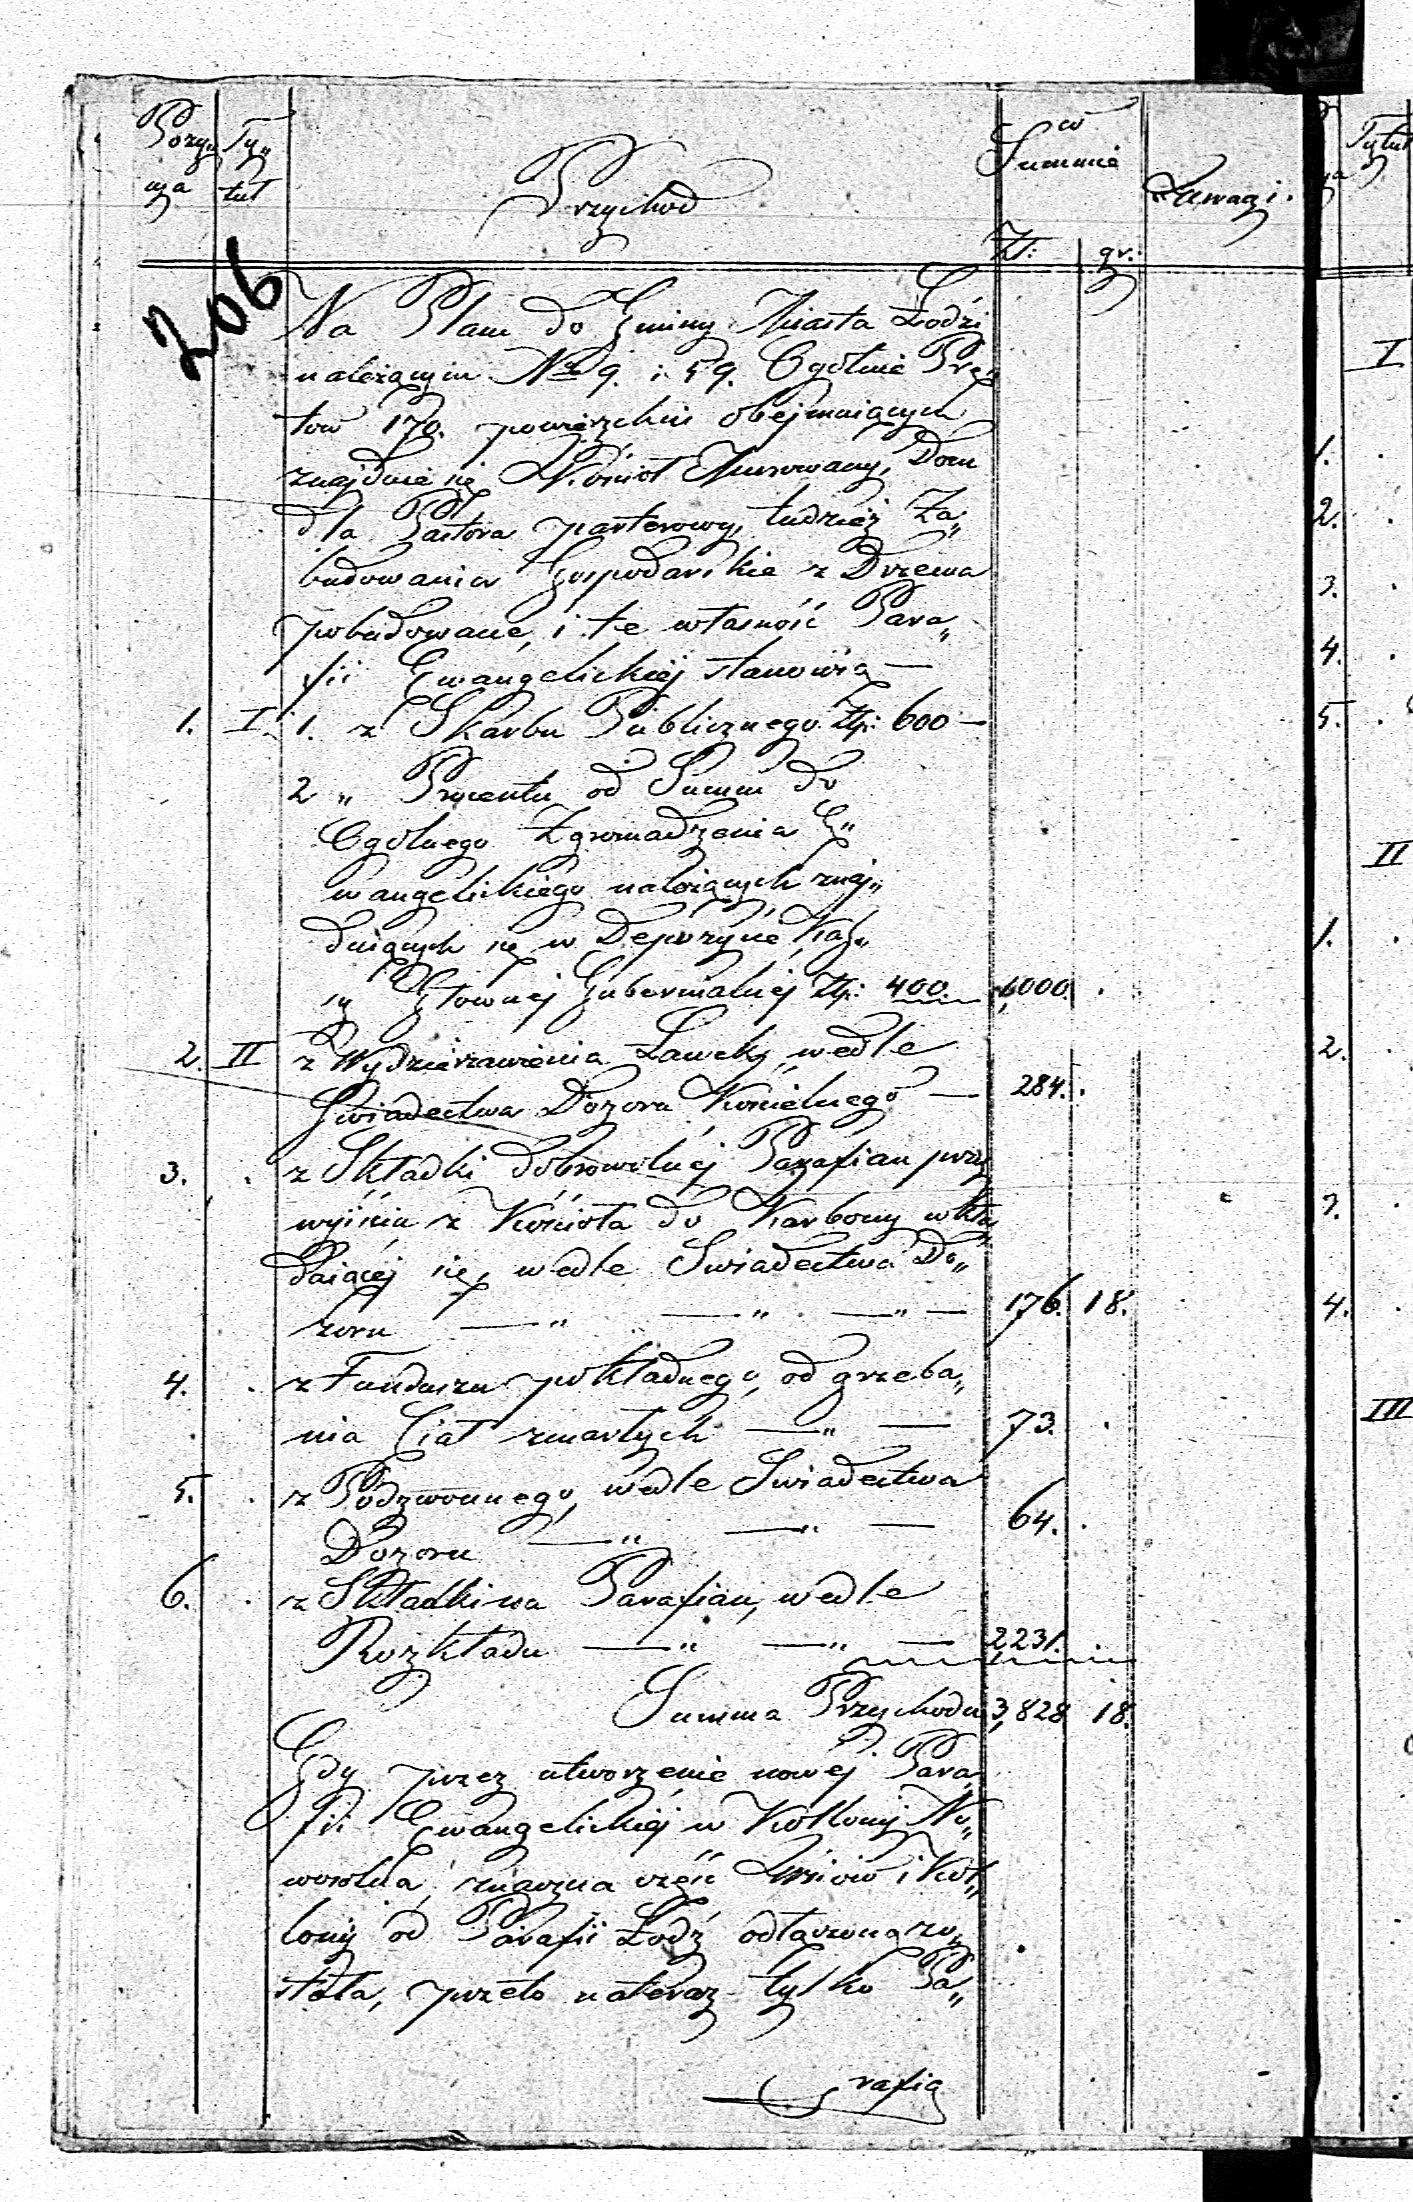 Pozy„ Ty„ Przychod w Summie Uwagi.
cya tuł
Zł: gr:
206
Na Placu do Gminy Miasta Łodzi
należącym Nro 9. i 59. Ogólnie Prę„
tow 170. powierzchni obejmuiących
znajduie się Kościoł Murowany, Dom
dla Pastora parterowy, tudzież Za„
budowania Gospodarskie z Drzewa
pobudowane, i te własność Para„
fii Ewangelickiéj stanowią —
1. I. 1. z Skarbu Publicznego Złp: 600 —
2 „ Procentu od Summ do
Ogólnego Zgromadzenia E„
wangelickiego należących znaj„
duiących się w Depozycie Kas„
sy Głownej Gubernialnéj Złp: 400. 1,000. .
2. II z Wydzierżawienia Ławek, wedle
Świadectwa Dozoru Kościelnego — 284. .
3. . z Składki dobrowolnéj Parafian przy
wyiściu z Kościoła do Karbony wkła„
daiącéj się, wedle Świadectwa Do„
zoru — „ — „ — „ — 176. 18.
4. . z Funduszu pokładnego, od grzeba„
nia Ciał zmarłych — „ — 73. .
5. . z Podzwonnego, wedle Świadectwa
Dozoru — „ — „ — 64. .
6. . z Składki na Parafian, wedle
Rozkładu — „ — „ — 2,231. .
Summa Przychodu 3,828 18.
Gdy przez utworzenie nowéj Para„
fii Ewangelickiéj w Kollonij No„
wosolna, znaczna część Wsiow i Kol„
lonij od Parafii Łodź odłączona zo„
stała, przeto nateraz tylko Pa„
rafia
Tytuł
I
1.
2.
3.
4.
5.
II
1.
2.
3.
4.
III